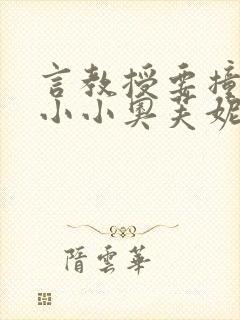 言教授要撞
小小奥芙妮
隋雲華